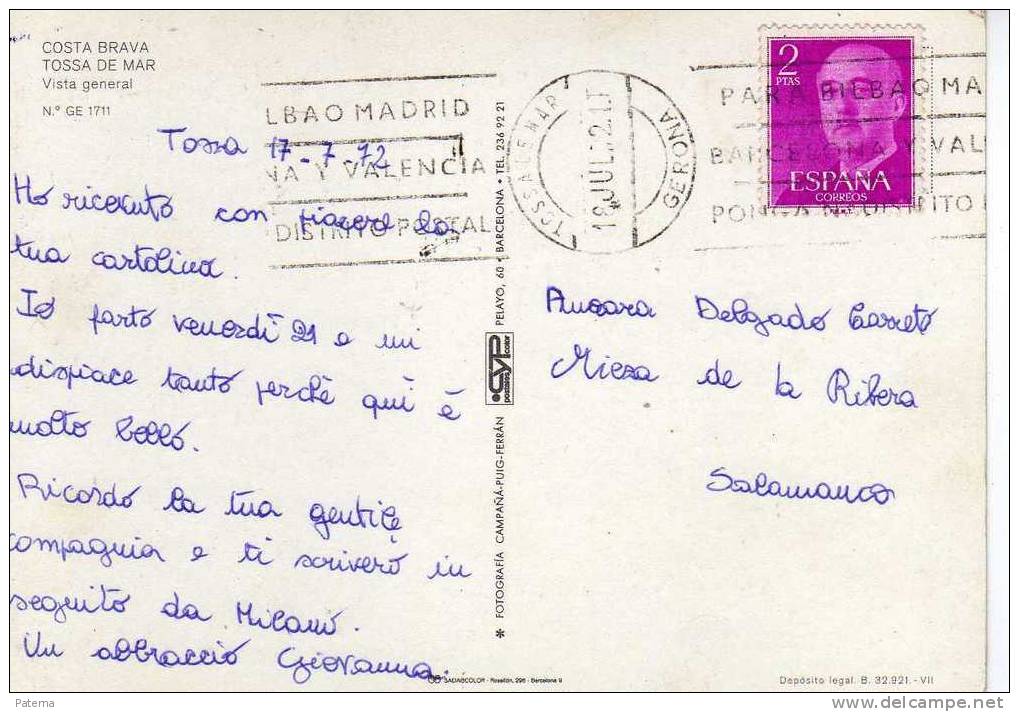 COSTA BRAVA
TOSSA DE MAR
Vista general
N.° GE 1711
LBAO MADRID
NA Y VALENCIA
DISTRITO POSTAL
TOSSA DE MAR
GERONA
PARA BILBAO MA
BARCELONA Y VAL
PONGA DISTRITO
2
PTAS
ESPAÑA
CORREOS
Tossa 17-7-72
Ho ricevuto con piacere la
tua cartolina.
Io parto venerdì 21 e mi
dispiace tanto perchè qui è
molto bello.
Ricordo la tua gentile
compagnia e ti scriverò in
seguito da Milano.
Un abbraccio Giovanna.
Delgado
Mieza de la Ribera
Salamanca
* FOTOGRAFÍA CAMPAÑÁ-PUIG-FERRÁN
CYP
postales color
PELAYO, 60 • BARCELONA • TEL. 236 92 21
SADAGCOLOR - Rosellón, 296 - Barcelona 9
Depósito legal. B. 32.921.-VII
Paterna
www.delcampe.net